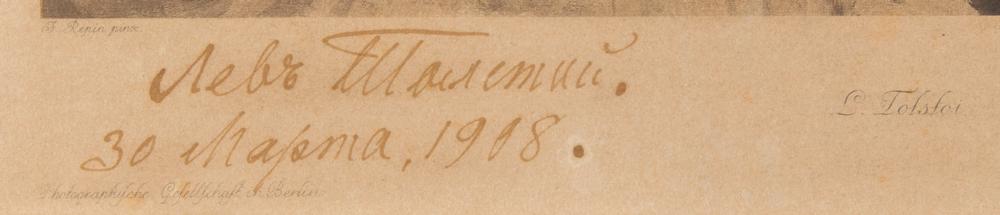 I. Repin pinx.
Левъ Толстой.
L. Tolstoi
30 Марта, 1908.
Photographische Gesellschaft in Berlin